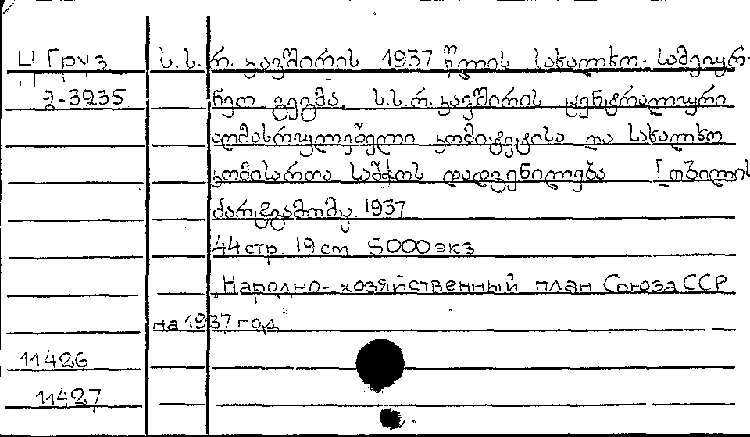 Ц Груз с.с.რ. კავშირის 1937 წლის სახალხო-სამეურ-
გ-3235 ნეო გეგმა. ს.ს.რ. კავშირის ცენტრალური
აღმასრულებელი კომიტეტისა და სახალხო
კომისართა საბჭოს დადგენილება [თბილისი
პარტგამომც. 1937
44 стр. 19 cm 5000 экз
Народно-хозяйственный план Союза ССР
на 1937 год
11426
11427